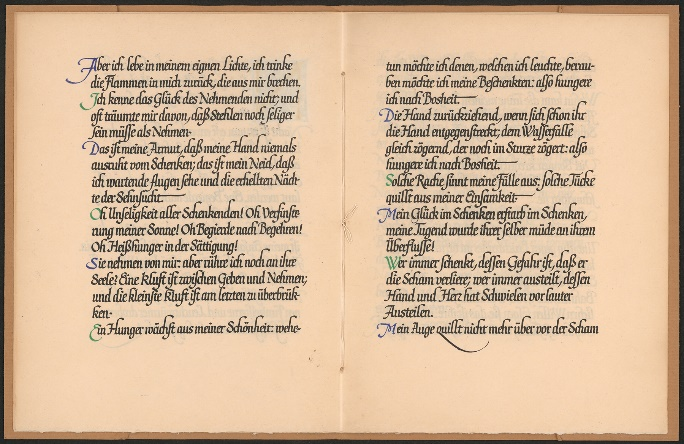 Aber ich lebe in meinem eignen Lichte, ich trinke
die Flammen in mich zurück, die aus mir brechen.
Ich kenne das Glück des Nehmenden nicht; und
oft träumte mir davon, daß Stehlen noch seliger
sein müsse als Nehmen.
Das ist meine Armut, daß meine Hand niemals
ausruht vom Schenken; das ist mein Neid, daß
ich wartende Augen sehe und die erhellten Näch-
te der Sehnsucht.
Oh Unseligkeit aller Schenkenden! Oh Verfinste-
rung meiner Sonne! Oh Begierde nach Begehren!
Oh Heißhunger in der Sättigung!
Sie nehmen von mir: aber rühre ich noch an ihre
Seele? Eine Kluft ist zwischen Geben und Nehmen;
und die kleinste Kluft ist am letzten zu überbrük-
ken.
Ein Hunger wächst aus meiner Schönheit: wehe-
tun möchte ich denen, welchen ich leuchte, berau-
ben möchte ich meine Beschenkten: also hungere
ich nach Bosheit.
Die Hand zurückziehend, wenn sich schon ihr
die Hand entgegenstreckt; dem Wasserfalle
gleich zögernd, der noch im Sturze zögert: also
hungere ich nach Bosheit.
Solche Rache sinnt meine Fülle aus; solche Tücke
quillt aus meiner Einsamkeit.
Mein Glück im Schenken erstarb im Schenken,
meine Tugend wurde ihrer selber müde an ihrem
Überflusse!
Wer immer schenkt, dessen Gefahr ist, daß er
die Scham verliere; wer immer austeilt, dessen
Hand und Herz hat Schwielen vor lauter
Austeilen.
Mein Auge quillt nicht mehr über vor der Scham